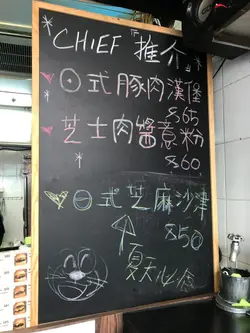 CHIEF 推介
日式豚肉漢堡
$65
芝士肉醬意粉
$60
日式芝麻沙津
$50
夏天必食